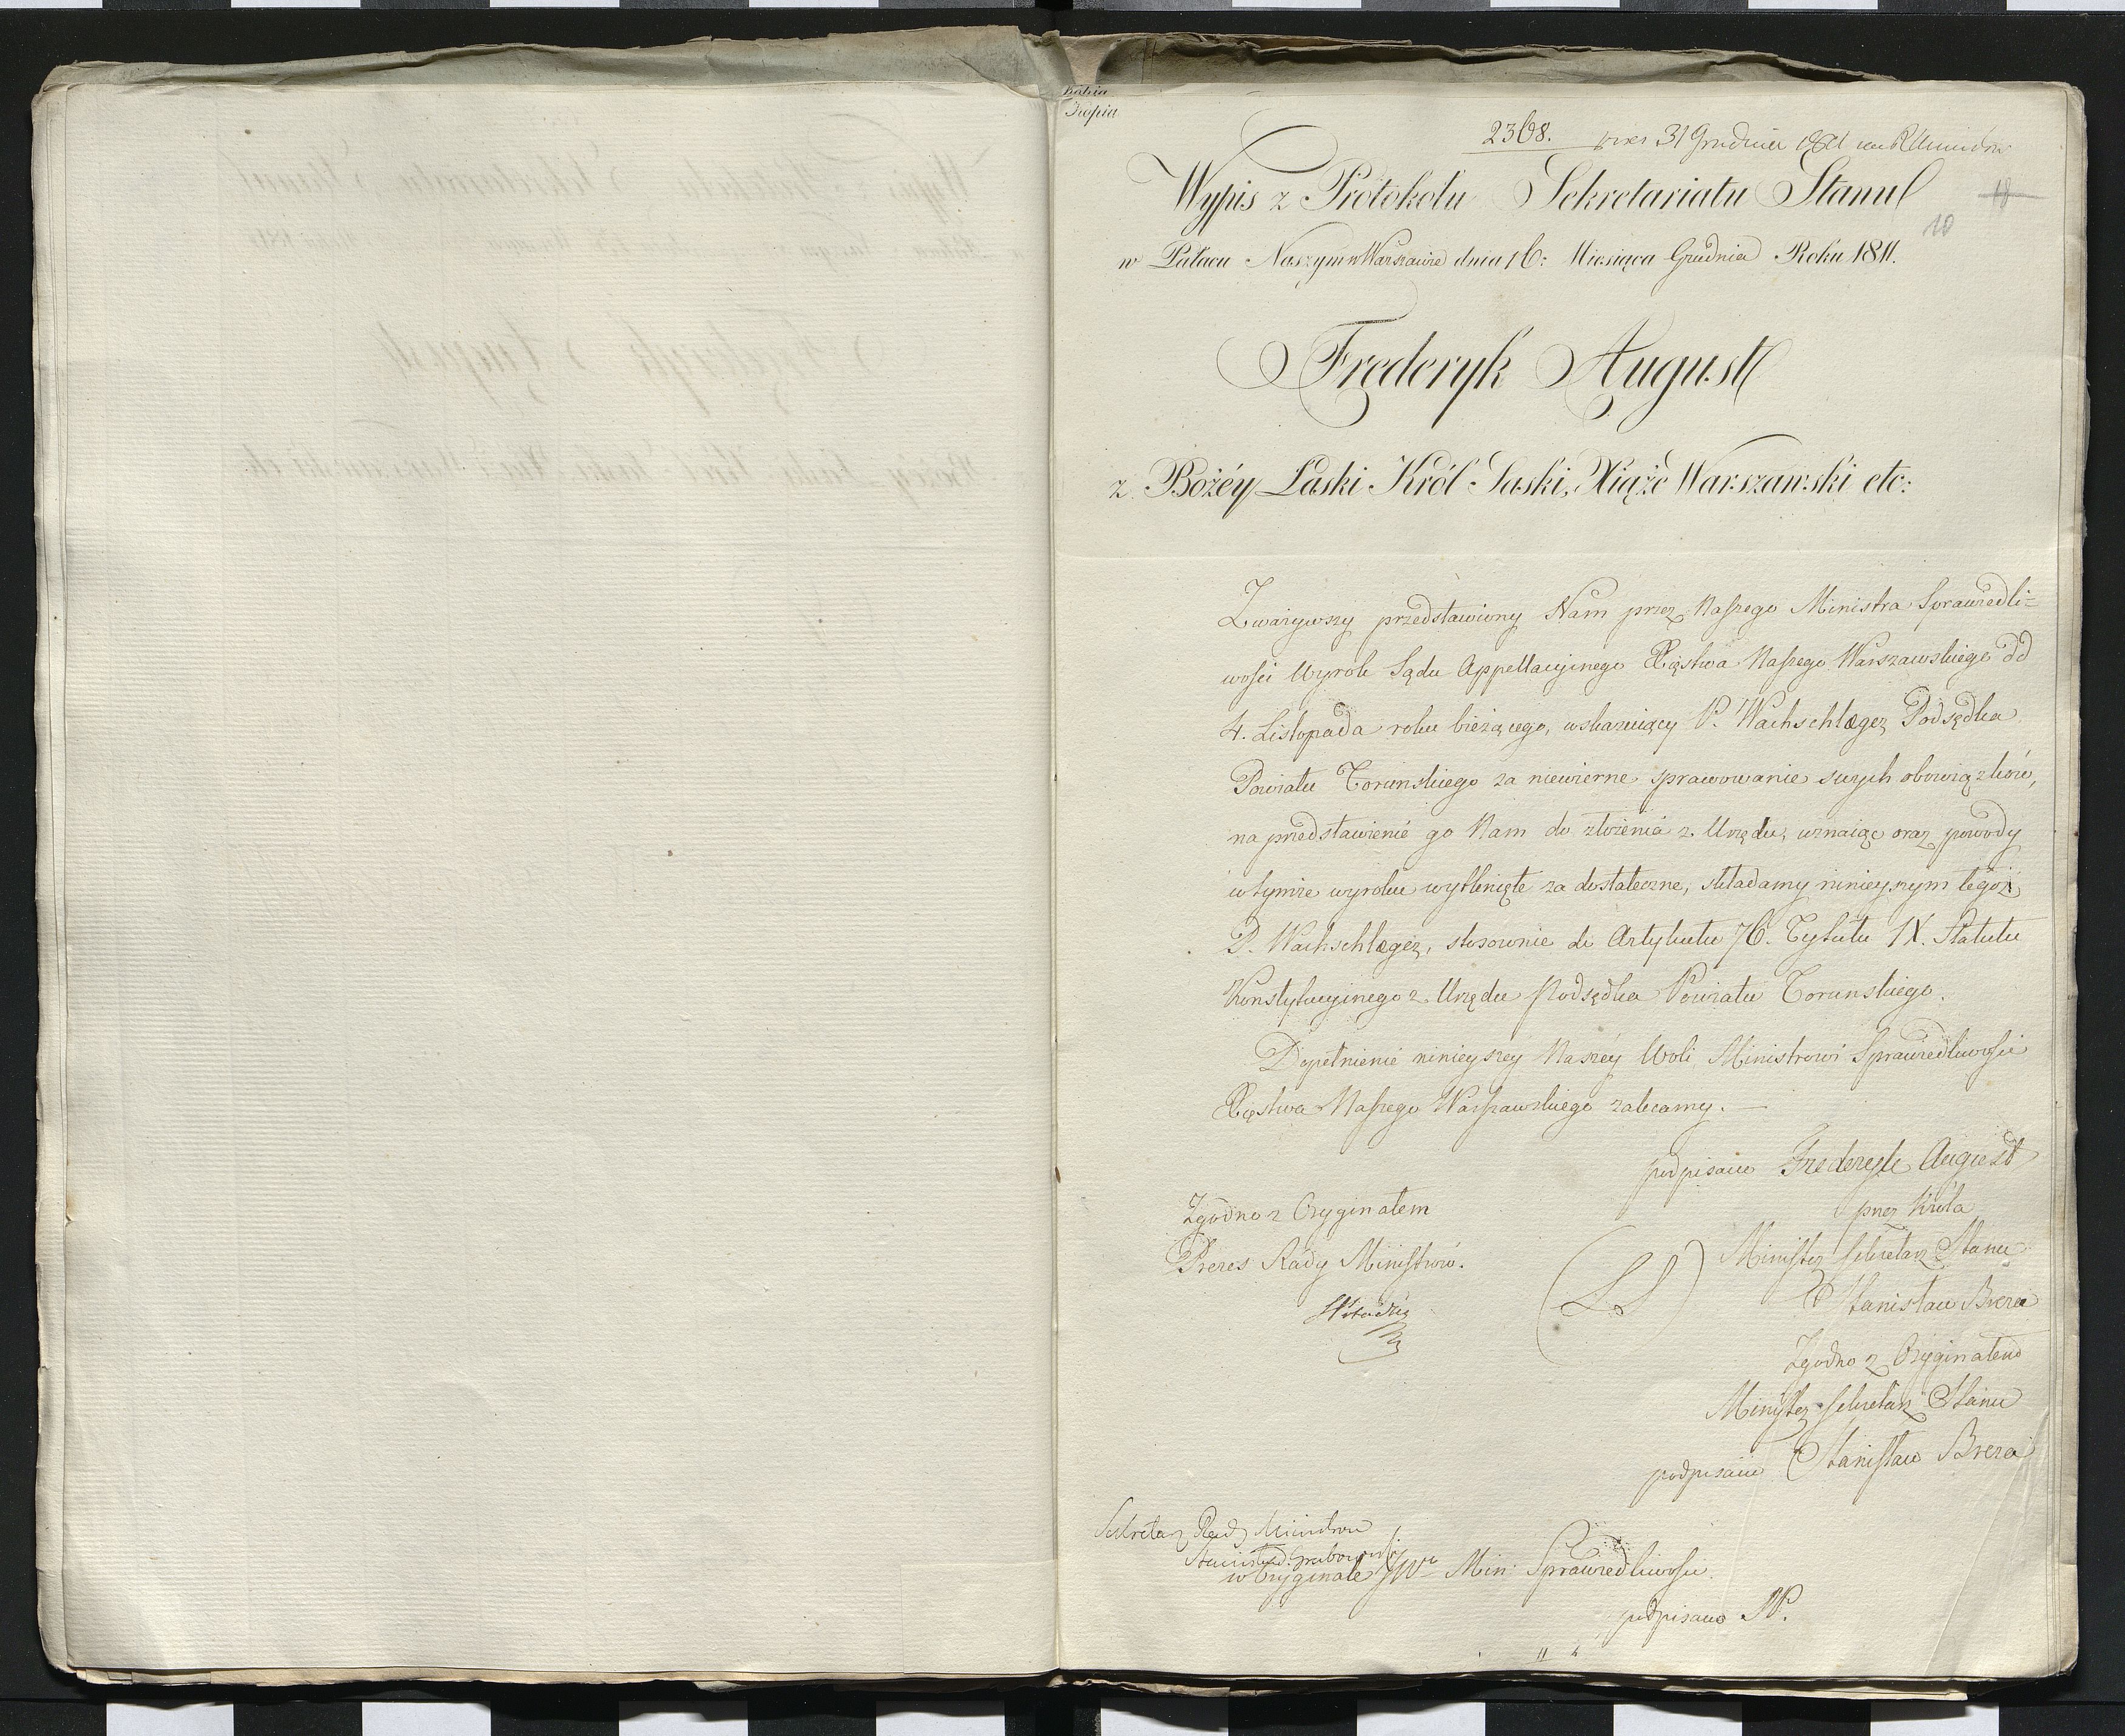 Kopia
2368.
31 Grudnia
Wypis z Protokołu Sekretariatu Stanu
18
10
w Pałacu Naszym w Warszawie dnia 16: Miesiąca Grudnia Roku 1811.
Frederyk August
z Bożéy Łaski Król Saski, Xiąże Warszawski etc:
Zważywszy przedstawiony Nam przez Naszego Ministra Sprawiedli=
wości Wyrok Sądu Appellacyjnego Xięstwa Naszego Warszawskiego dd
4. Listopada roku bieżącego, wskazuiący P. Wachschlæger, Podsędka
Powiatu Torunskiego za niewierne sprawowanie swych obowiązków,
na przedstawienie go Nam do złożenia z Urzędu, uznaiąc oraz powody
w tymże wyroku wytknięte za dostateczne, składamy ninieyszym tegoż
P. Wachschlæger, stosownie do Artykułu 76. Tytułu IX. Statutu
Konstytucyjnego z Urzędu Podsędka Powiatu Torunskiego.
Dopełnienie ninieyszey Naszéy Woli Ministrowi Sprawiedliwości
Xięstwa Naszego Warszawskiego zalecamy. —
podpisano Frederyk August
przez Króla
Zgodno z Oryginałem
Minister Sekretarz Stanu
Prezes Rady Ministrów.
(LS)
Stanisław Breza
Zgodno z Oryginałem
Minister Sekretarz Stanu
podpisano Stanisław Breza
Sekretarz Rady Ministrow
Grabowski
w Oryginale JWu Min: Sprawiedliwości.
podpisano